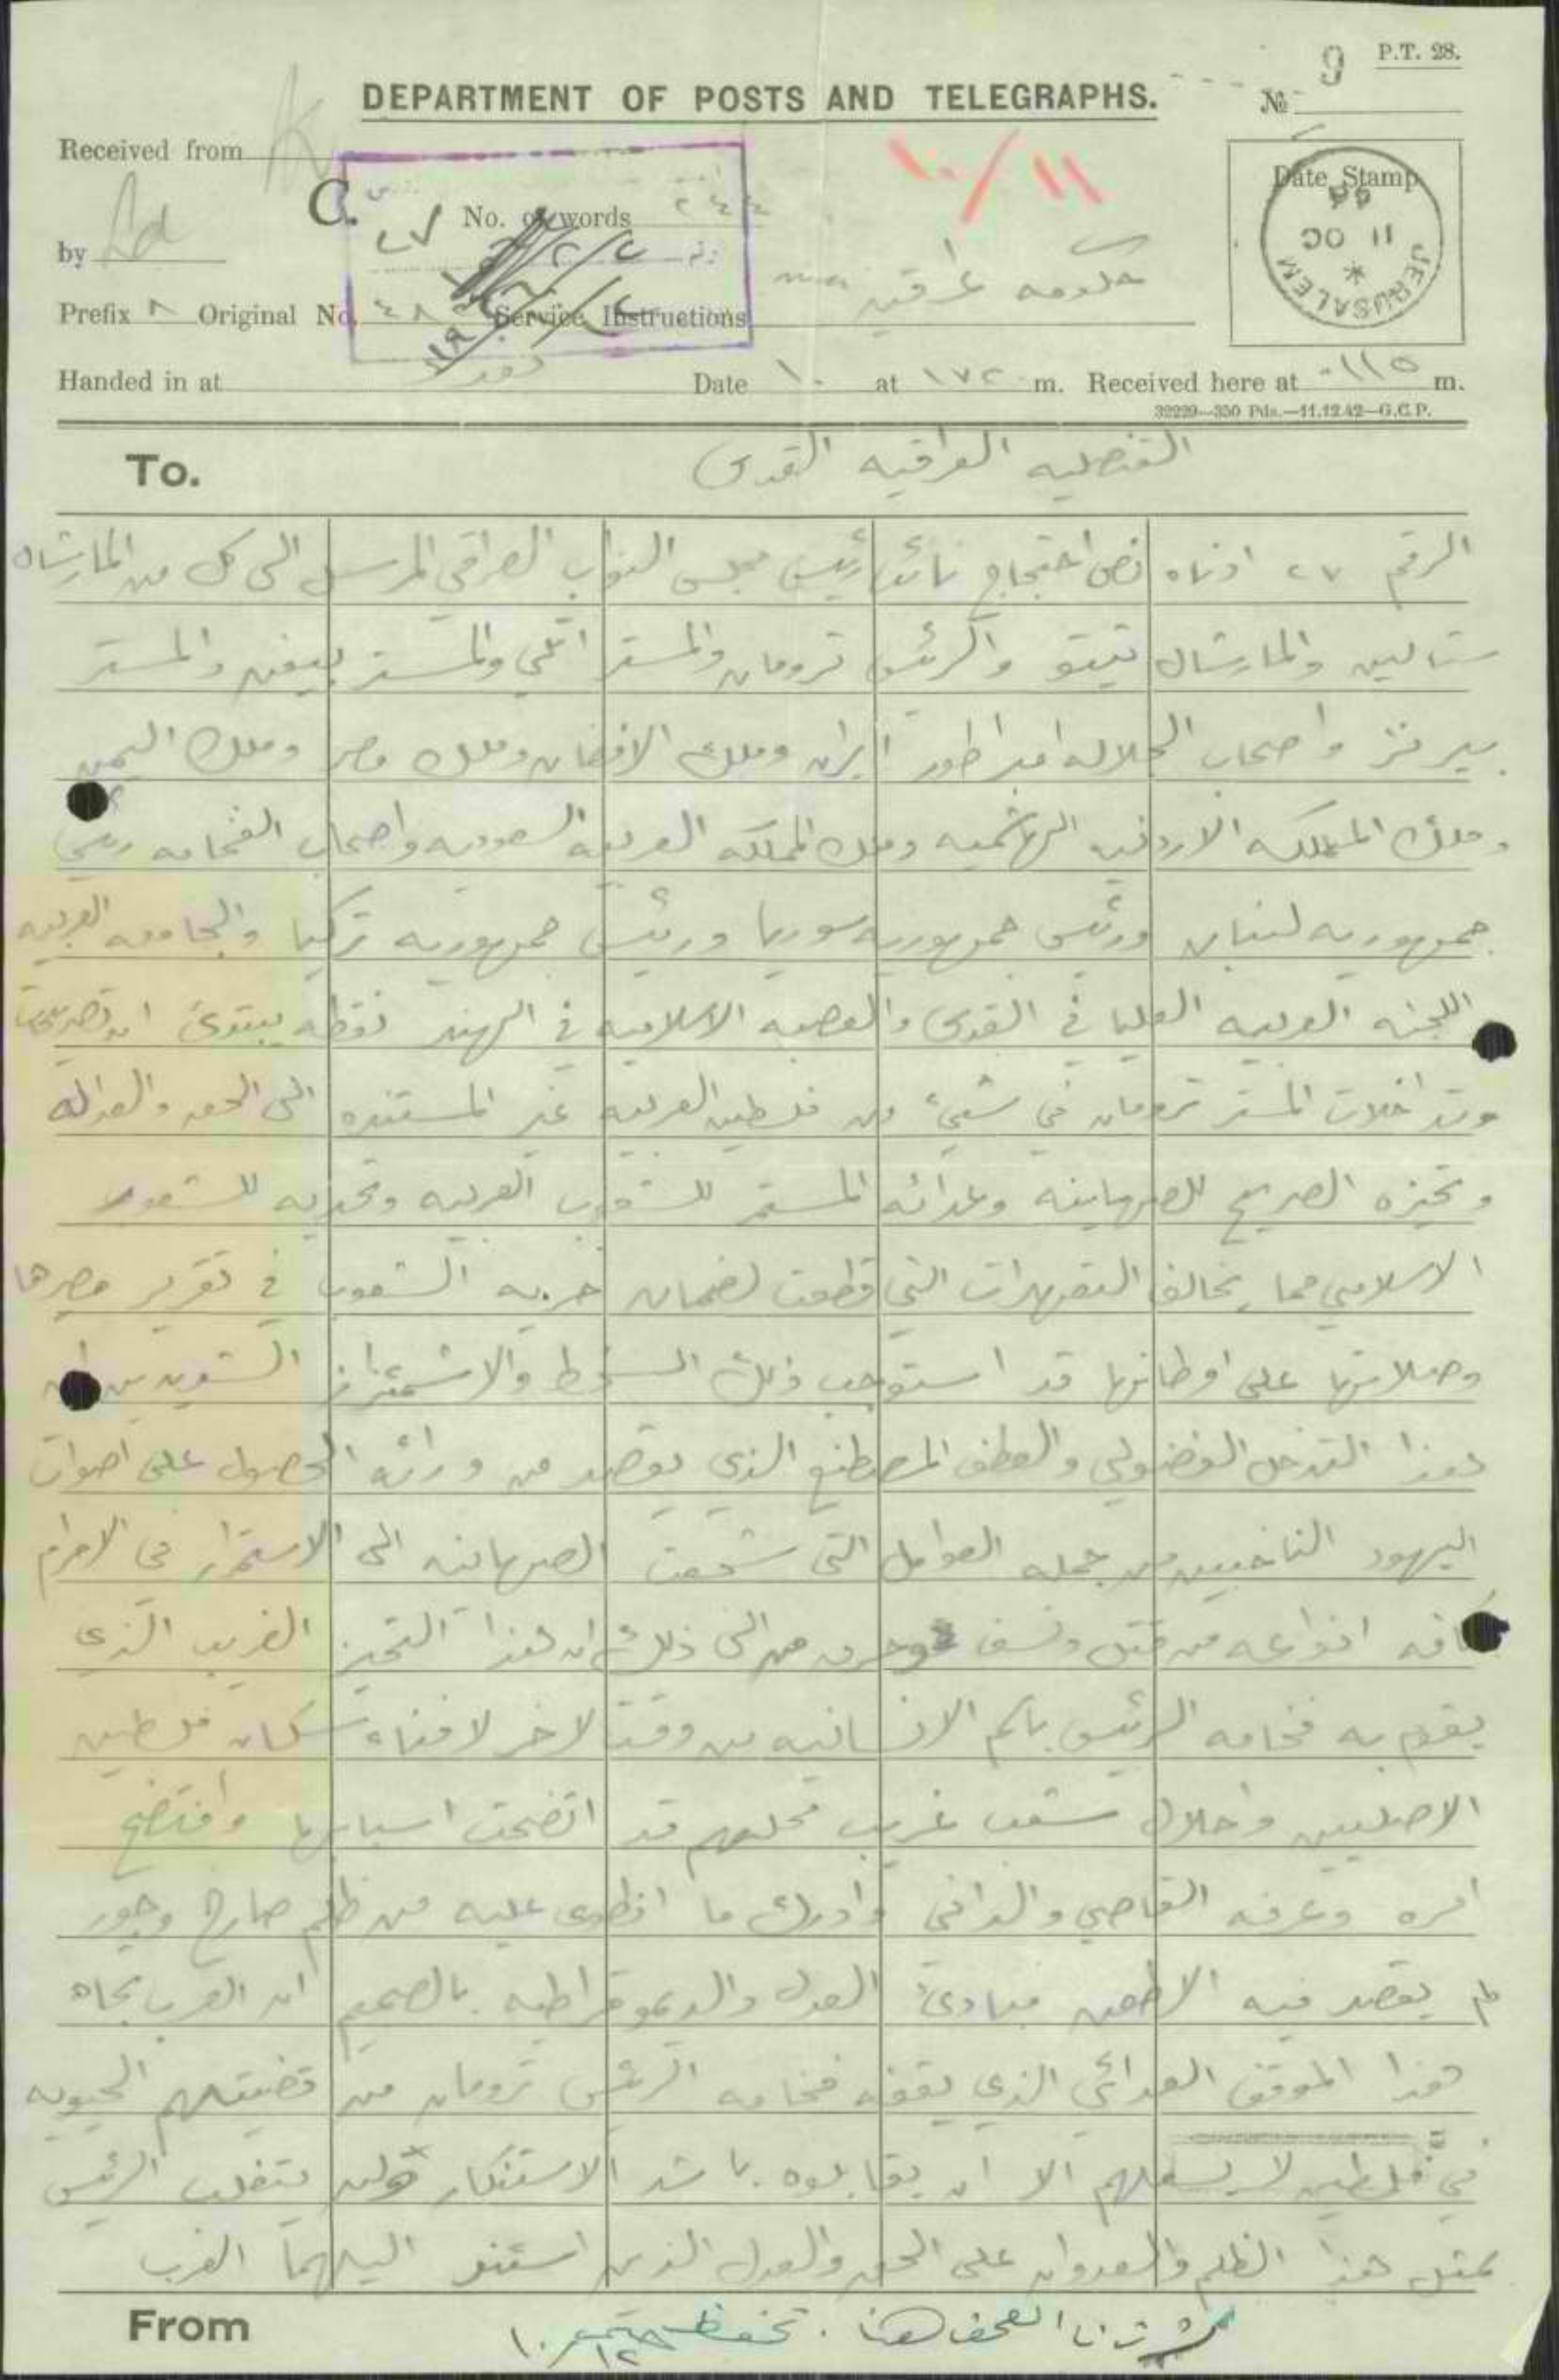 P.T. 28.
9
DEPARTMENT OF POSTS AND TELEGRAPHS.
№
Received from
١٠/١١
Date Stamp
11 OC
JERUSALEM
C.
No. of words
٢٧
by
حكومه عراقيه
Prefix ٨ Original No. ٤٨ Service Instructions
Handed in at
Date ١٠ at ١٧٢٠ m. Received here at ٠١١٥ m.
32229—350 Pds.—11.12.42—G.C.P.
To.
القنصليه العراقيه القدس
الرقم ٢٧ ادناه نص احتجاج نائب رئيس مجلس النواب العراقي المرسل الى كل من المارشال
ستالين والمارشال تيتو والرئيس ترومان والمستر اتلي والمستر بيفن والمستر
بيرنز واصحاب الجلاله امبراطور ايران وملك الافغان وملك مصر وملك اليمن
وملك المملكه الاردنيه الهاشميه وملك المملكه العربيه السعوديه واصحاب الفخامه رئيس
جمهوريه لبنان ورئيس جمهوريه سوريا ورئيس جمهوريه تركيا والجامعه العربيه
اللجنه العربيه العليا في القدس والعصبه الاسلاميه في الهند نقطه يبتدئ ان تصريحات
وتداخلات المستر ترومان في شيء من فلسطين العربيه غير المستنده الى الحق والعداله
وتحيزه الصريح للصهاينه وعدائه المستمر للشعوب العربيه وتحديه للشعور
الاسلامي مما يخالف التعهدات التي قطعت لضمان حريه الشعوب في تقرير مصيرها
وصلاتها على اوطانها قد استوجب ذلك السخط والاشمئزاز الشديدين ان
هذا التدخل الفضولي والعطف المصطنع الذي يقصد من ورائه الحصول على اصوات
اليهود الناخبين من جمله العوامل التي شجعت الصهاينه الى الاستمرار في الاجرام
كافه انواعه من قتل ونسف وحرق من الى ذلك ان هذا التحيز الغريب الذي
يقوم به فخامه الرئيس باسم الانسانيه من وقت لاخر لافناء سكان فلسطين
الاصليين واحلال شعب غريب محلهم قد اتضحت اسبابها وافتضح
امره وعرفه القاصي والداني وادرك ما انطوى عليه من ظلم صارخ وجور
لم يقصد فيه الا طعن مبادئ العدل والديموقراطيه بالصميم ان العرب تجاه
هذا الموقف العدائي الذي يقفه فخامه الرئيس ترومان من قضيتهم الحيويه
في فلسطين لا يسعهم الا ان يقابلوه باشد الاستنكار ولن يتغلب الرئيس
بمثل هذا الظلم والعدوان على الحق والعدل الذين استند اليهما العرب
From
نشرتها الصحف هنا . تحفظ
١٠/١٢